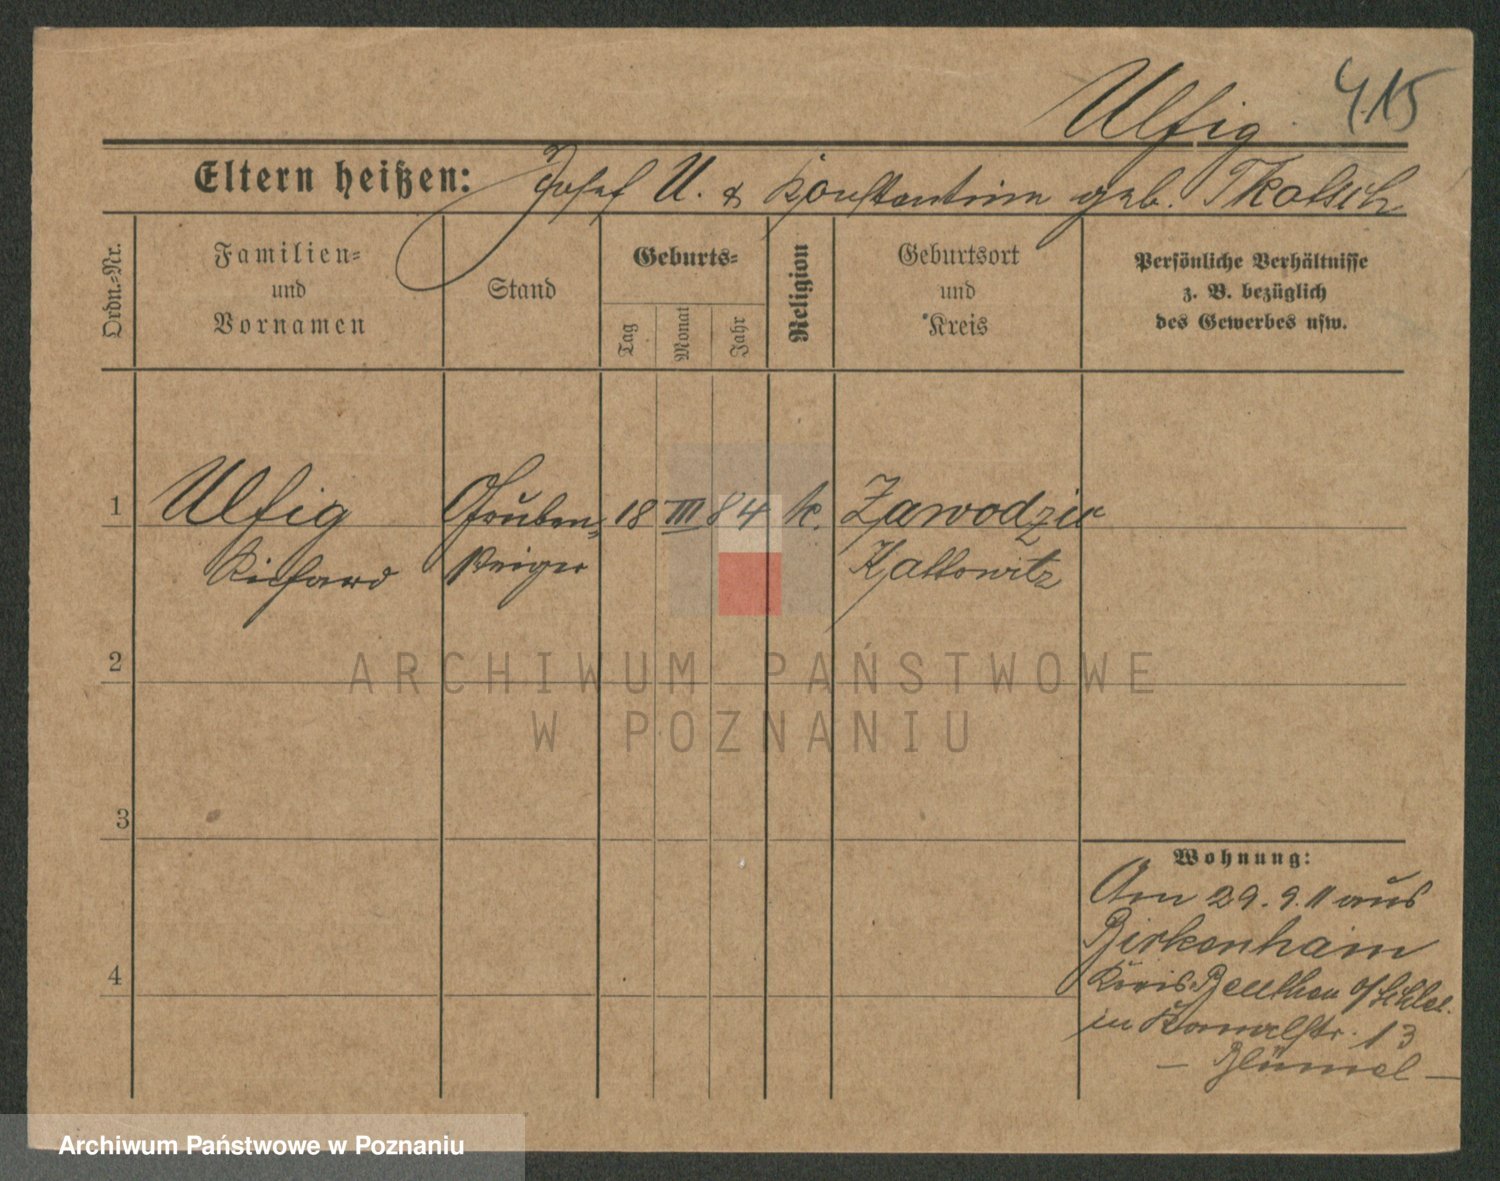 Ulfig. 415
Eltern heißen: Josef U. & Konstantine geb. Tkotsch
Ordn.-Nr.
Familien-
und
Vornamen
Stand
Geburts-
Tag
Monat
Jahr
Religion
Geburtsort
und
Kreis
Persönliche Verhältnisse
z. B. bezüglich
des Gewerbes usw.
1 Ulfig Gruben- 18 III 84 k. Zawodzie
Richard Kattowitz
2
3
4
Wohnung:
Am 29.9.11 aus
Birkenhain
Kreis Beuthen O/Schles.
in 13
— Blümel —
ARCHIWUM PAŃSTWOWE
W POZNANIU
Archiwum Państwowe w Poznaniu